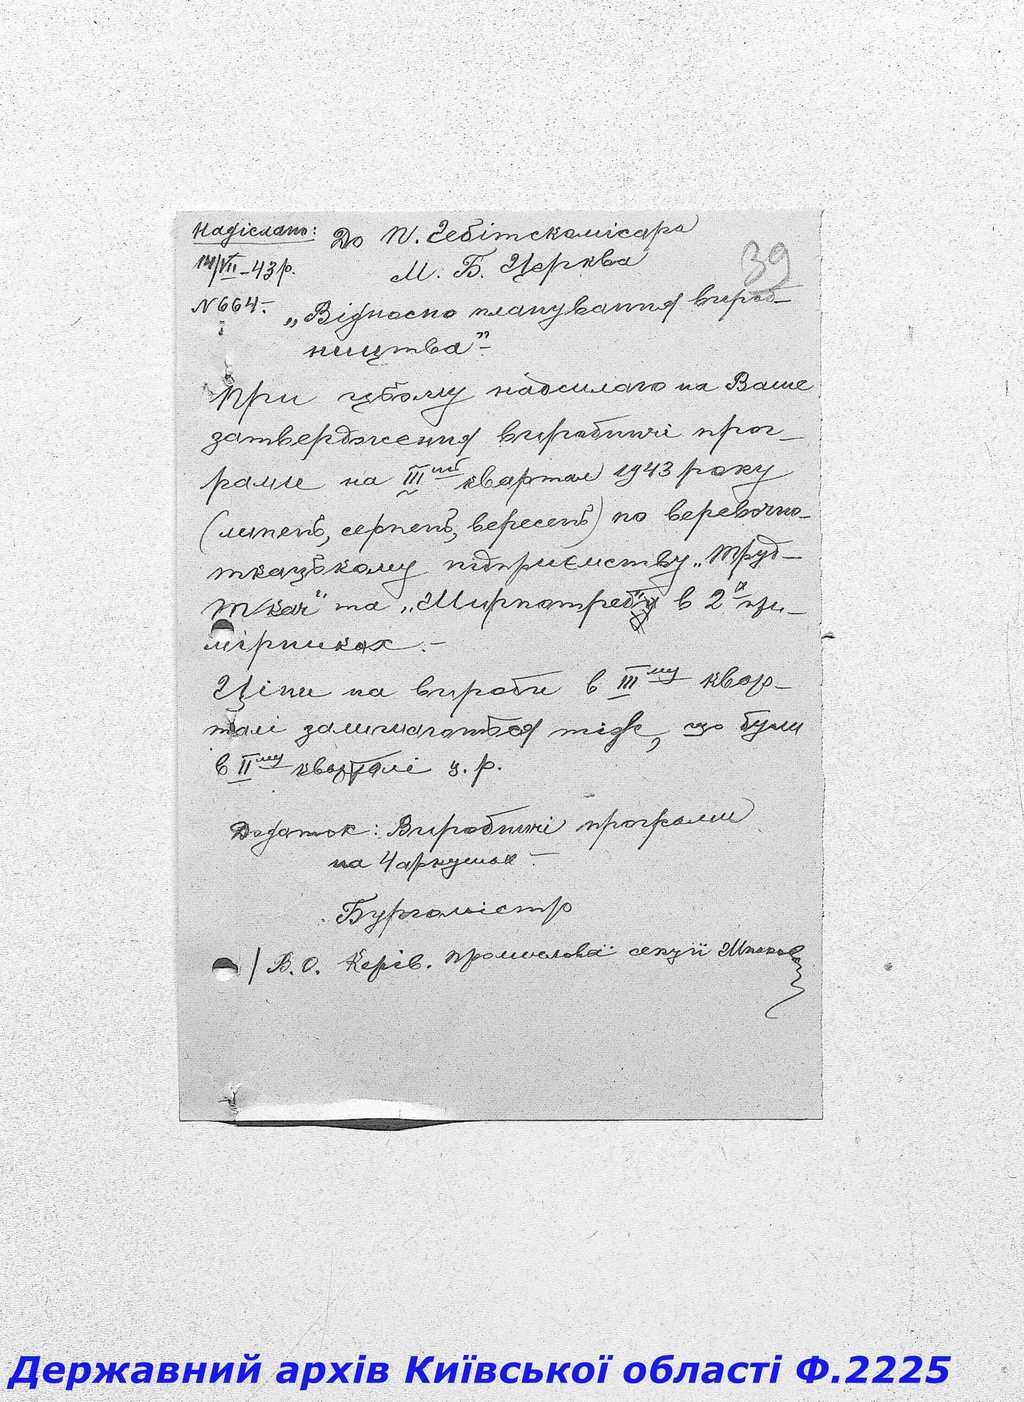 Надіслано:
14/VII-43 р.
№ 664.-
До П. Гебітскомісара
М. Б. Церква
39
„Відносно планування вироб-
ництва"-
При цьому надсилаю на Ваше
затвердження виробничі прог-
рами на III-ий квартал 1943 року
(липень, серпень, вересень) по веревочно-
ткацькому підприємству „Труд-
Ткач" та „Ширпотреб" в 2-х при-
мірниках.-
Ціни на вироби в III-му квар-
талі залишаються тіж, що були
в II-му кварталі ц. р.
Додаток: Виробничі програми
на 4 аркушах -
Бургомістр
/ В. О. Керів. промислової секції
Державний архів Київської області Ф.2225